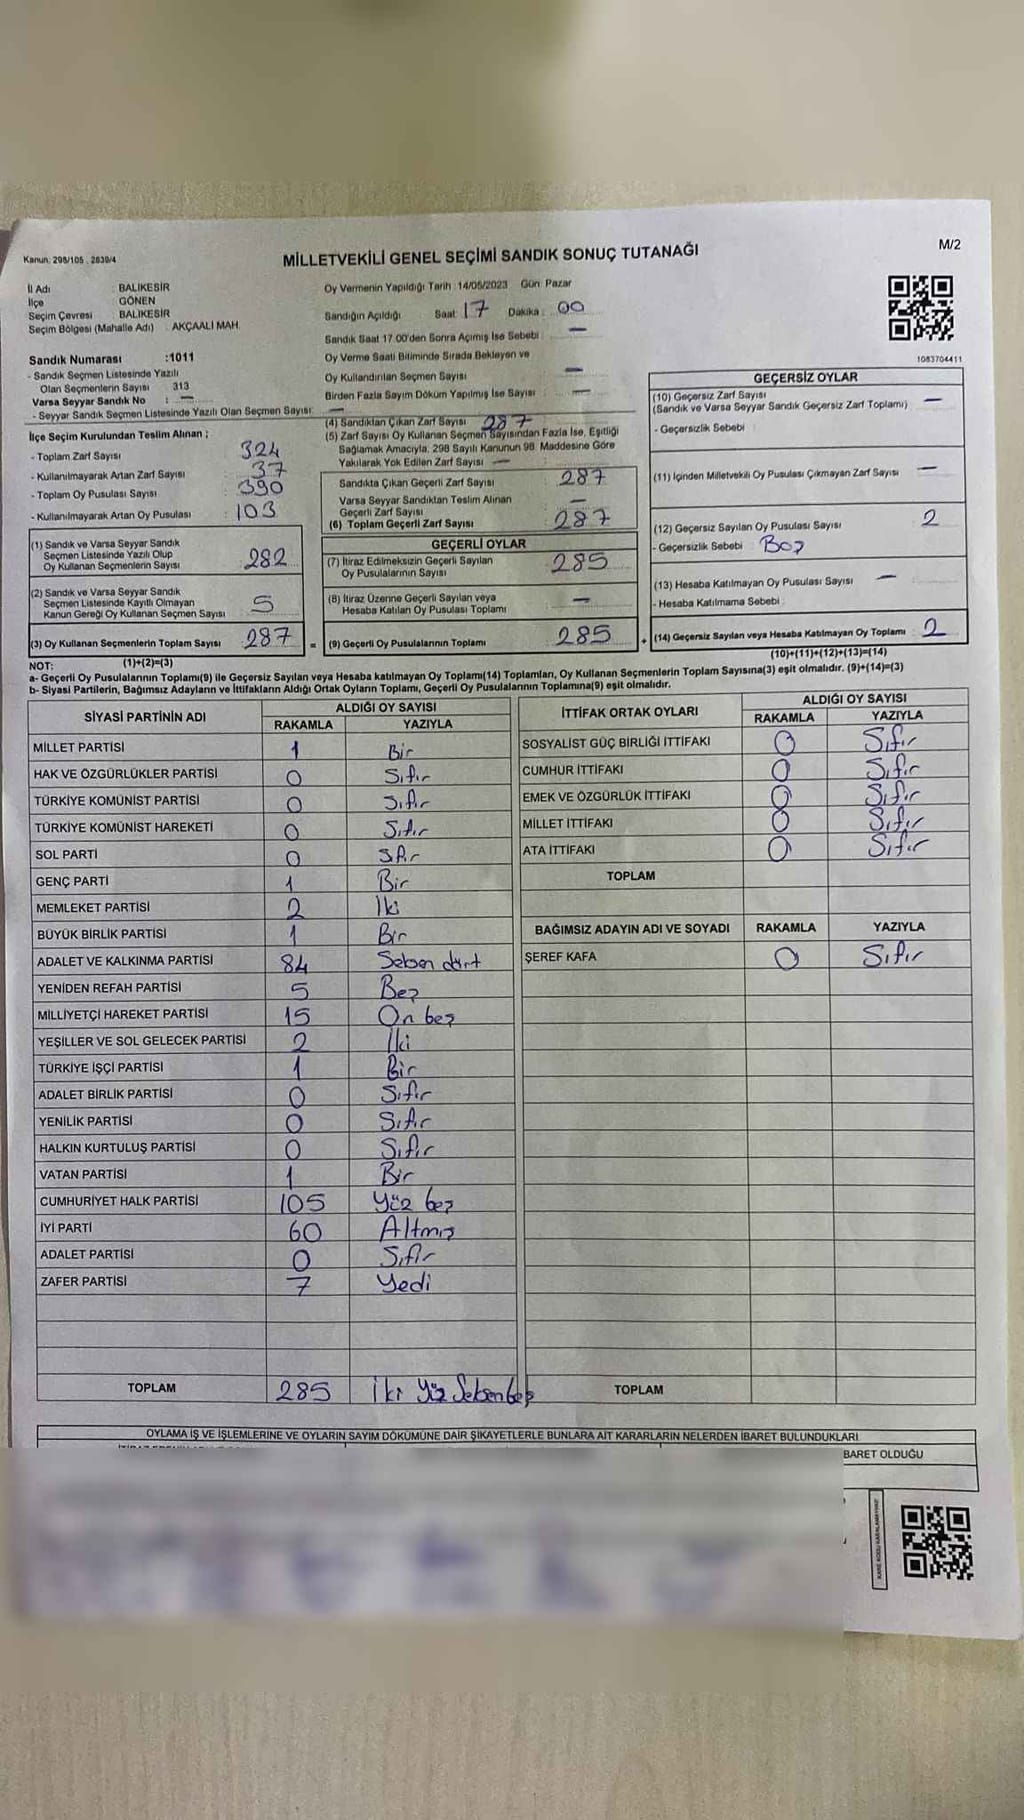 Kanun: 298/105 , 2839/4
MİLLETVEKİLİ GENEL SEÇİMİ SANDIK SONUÇ TUTANAĞI
M/2
İl Adı : BALIKESİR
İlçe : GÖNEN
Seçim Çevresi : BALIKESİR
Seçim Bölgesi (Mahalle Adı) : AKÇAALİ MAH.
Sandık Numarası :1011
- Sandık Seçmen Listesinde Yazılı
Olan Seçmenlerin Sayısı : 313
Varsa Seyyar Sandık No : —
- Seyyar Sandık Seçmen Listesinde Yazılı Olan Seçmen Sayısı: —
İlçe Seçim Kurulundan Teslim Alınan ;
- Toplam Zarf Sayısı : 324
- Kullanılmayarak Artan Zarf Sayısı : 37
- Toplam Oy Pusulası Sayısı : 390
- Kullanılmayarak Artan Oy Pusulası : 103
(1) Sandık ve Varsa Seyyar Sandık
Seçmen Listesinde Yazılı Olup
Oy Kullanan Seçmenlerin Sayısı 282
(2) Sandık ve Varsa Seyyar Sandık
Seçmen Listesinde Kayıtlı Olmayan
Kanun Gereği Oy Kullanan Seçmen Sayısı 5
(3) Oy Kullanan Seçmenlerin Toplam Sayısı 287 =
Oy Vermenin Yapıldığı Tarih :14/05/2023 Gün: Pazar
Sandığın Açıldığı Saat: 17 Dakika : 00
Sandık Saat 17.00'den Sonra Açımış İse Sebebi : —
Oy Verme Saati Bitiminde Sırada Bekleyen ve
Oy Kullandırılan Seçmen Sayısı : —
Birden Fazla Sayım Döküm Yapılmış İse Sayısı : —
(4) Sandıktan Çıkan Zarf Sayısı : 287
(5) Zarf Sayısı Oy Kullanan Seçmen Sayısından Fazla İse, Eşitliği
Sağlamak Amacıyla, 298 Sayılı Kanunun 98. Maddesine Göre
Yakılarak Yok Edilen Zarf Sayısı —
Sandıkta Çıkan Geçerli Zarf Sayısı : 287
Varsa Seyyar Sandıktan Teslim Alınan
Geçerli Zarf Sayısı : —
(6) Toplam Geçerli Zarf Sayısı : 287
GEÇERLİ OYLAR
(7) İtiraz Edilmeksizin Geçerli Sayılan
Oy Pusulalarının Sayısı : 285
(8) İtiraz Üzerine Geçerli Sayılan veya
Hesaba Katılan Oy Pusulası Toplamı : —
(9) Geçerli Oy Pusulalarının Toplamı : 285 +
1083704411
GEÇERSİZ OYLAR
(10) Geçersiz Zarf Sayısı
(Sandık ve Varsa Seyyar Sandık Geçersiz Zarf Toplamı) —
- Geçersizlik Sebebi :
(11) İçinden Milletvekili Oy Pusulası Çıkmayan Zarf Sayısı —
(12) Geçersiz Sayılan Oy Pusulası Sayısı 2
- Geçersizlik Sebebi : Boş
(13) Hesaba Katılmayan Oy Pusulası Sayısı —
- Hesaba Katılmama Sebebi :
(14) Geçersiz Sayılan veya Hesaba Katılmayan Oy Toplamı 2
(10)+(11)+(12)+(13)=(14)
NOT: (1)+(2)=(3)
a- Geçerli Oy Pusulalarının Toplamı(9) ile Geçersiz Sayılan veya Hesaba katılmayan Oy Toplamı(14) Toplamları, Oy Kullanan Seçmenlerin Toplam Sayısına(3) eşit olmalıdır. (9)+(14)=(3)
b- Siyasi Partilerin, Bağımsız Adayların ve İttifakların Aldığı Ortak Oyların Toplamı, Geçerli Oy Pusulalarının Toplamına(9) eşit olmalıdır.
SİYASİ PARTİNİN ADI ALDIĞI OY SAYISI
RAKAMLA YAZIYLA
MİLLET PARTİSİ 1 Bir
HAK VE ÖZGÜRLÜKLER PARTİSİ 0 Sıfır
TÜRKİYE KOMÜNİST PARTİSİ 0 Sıfır
TÜRKİYE KOMÜNİST HAREKETİ 0 Sıfır
SOL PARTİ 0 Sıfır
GENÇ PARTİ 1 Bir
MEMLEKET PARTİSİ 2 İki
BÜYÜK BİRLİK PARTİSİ 1 Bir
ADALET VE KALKINMA PARTİSİ 84 Seksen dört
YENİDEN REFAH PARTİSİ 5 Beş
MİLLİYETÇİ HAREKET PARTİSİ 15 On beş
YEŞİLLER VE SOL GELECEK PARTİSİ 2 İki
TÜRKİYE İŞÇİ PARTİSİ 1 Bir
ADALET BİRLİK PARTİSİ 0 Sıfır
YENİLİK PARTİSİ 0 Sıfır
HALKIN KURTULUŞ PARTİSİ 0 Sıfır
VATAN PARTİSİ 1 Bir
CUMHURİYET HALK PARTİSİ 105 Yüz beş
İYİ PARTİ 60 Altmış
ADALET PARTİSİ 0 Sıfır
ZAFER PARTİSİ 7 Yedi
TOPLAM 285 İki Yüz Seksen beş
İTTİFAK ORTAK OYLARI ALDIĞI OY SAYISI
RAKAMLA YAZIYLA
SOSYALİST GÜÇ BİRLİĞİ İTTİFAKI 0 Sıfır
CUMHUR İTTİFAKI 0 Sıfır
EMEK VE ÖZGÜRLÜK İTTİFAKI 0 Sıfır
MİLLET İTTİFAKI 0 Sıfır
ATA İTTİFAKI 0 Sıfır
TOPLAM
BAĞIMSIZ ADAYIN ADI VE SOYADI RAKAMLA YAZIYLA
ŞEREF KAFA 0 Sıfır
TOPLAM
OYLAMA İŞ VE İŞLEMLERİNE VE OYLARIN SAYIM DÖKÜMÜNE DAİR ŞİKAYETLERLE BUNLARA AİT KARARLARIN NELERDEN İBARET BULUNDUKLARI
BARET OLDUĞU